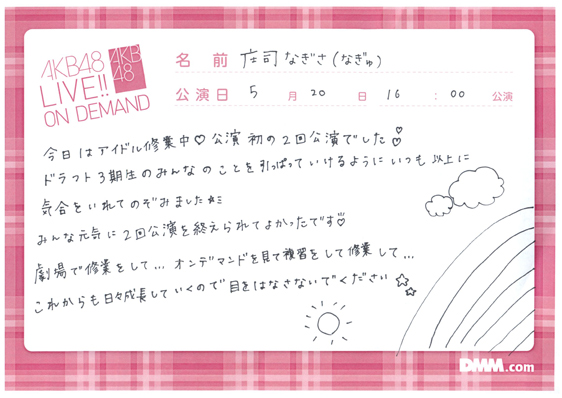 AKB48
LIVE!!
ON DEMAND
AKB
48
名前 庄司なぎさ(なぎゅ)
公演日 5月20日 16:00 公演
今日はアイドル修業中♡公演 初の2回公演でした♡
ドラフト3期生のみんなのことを引っぱっていけるようにいつも以上に
気合をいれてのぞみました☆ミ
みんな元気に2回公演を終えられてよかったです♡
劇場で修業をして... オンデマンドを見て複習をして修業して...
これからも日々成長していくので目をはなさないでください☆
DMM.com